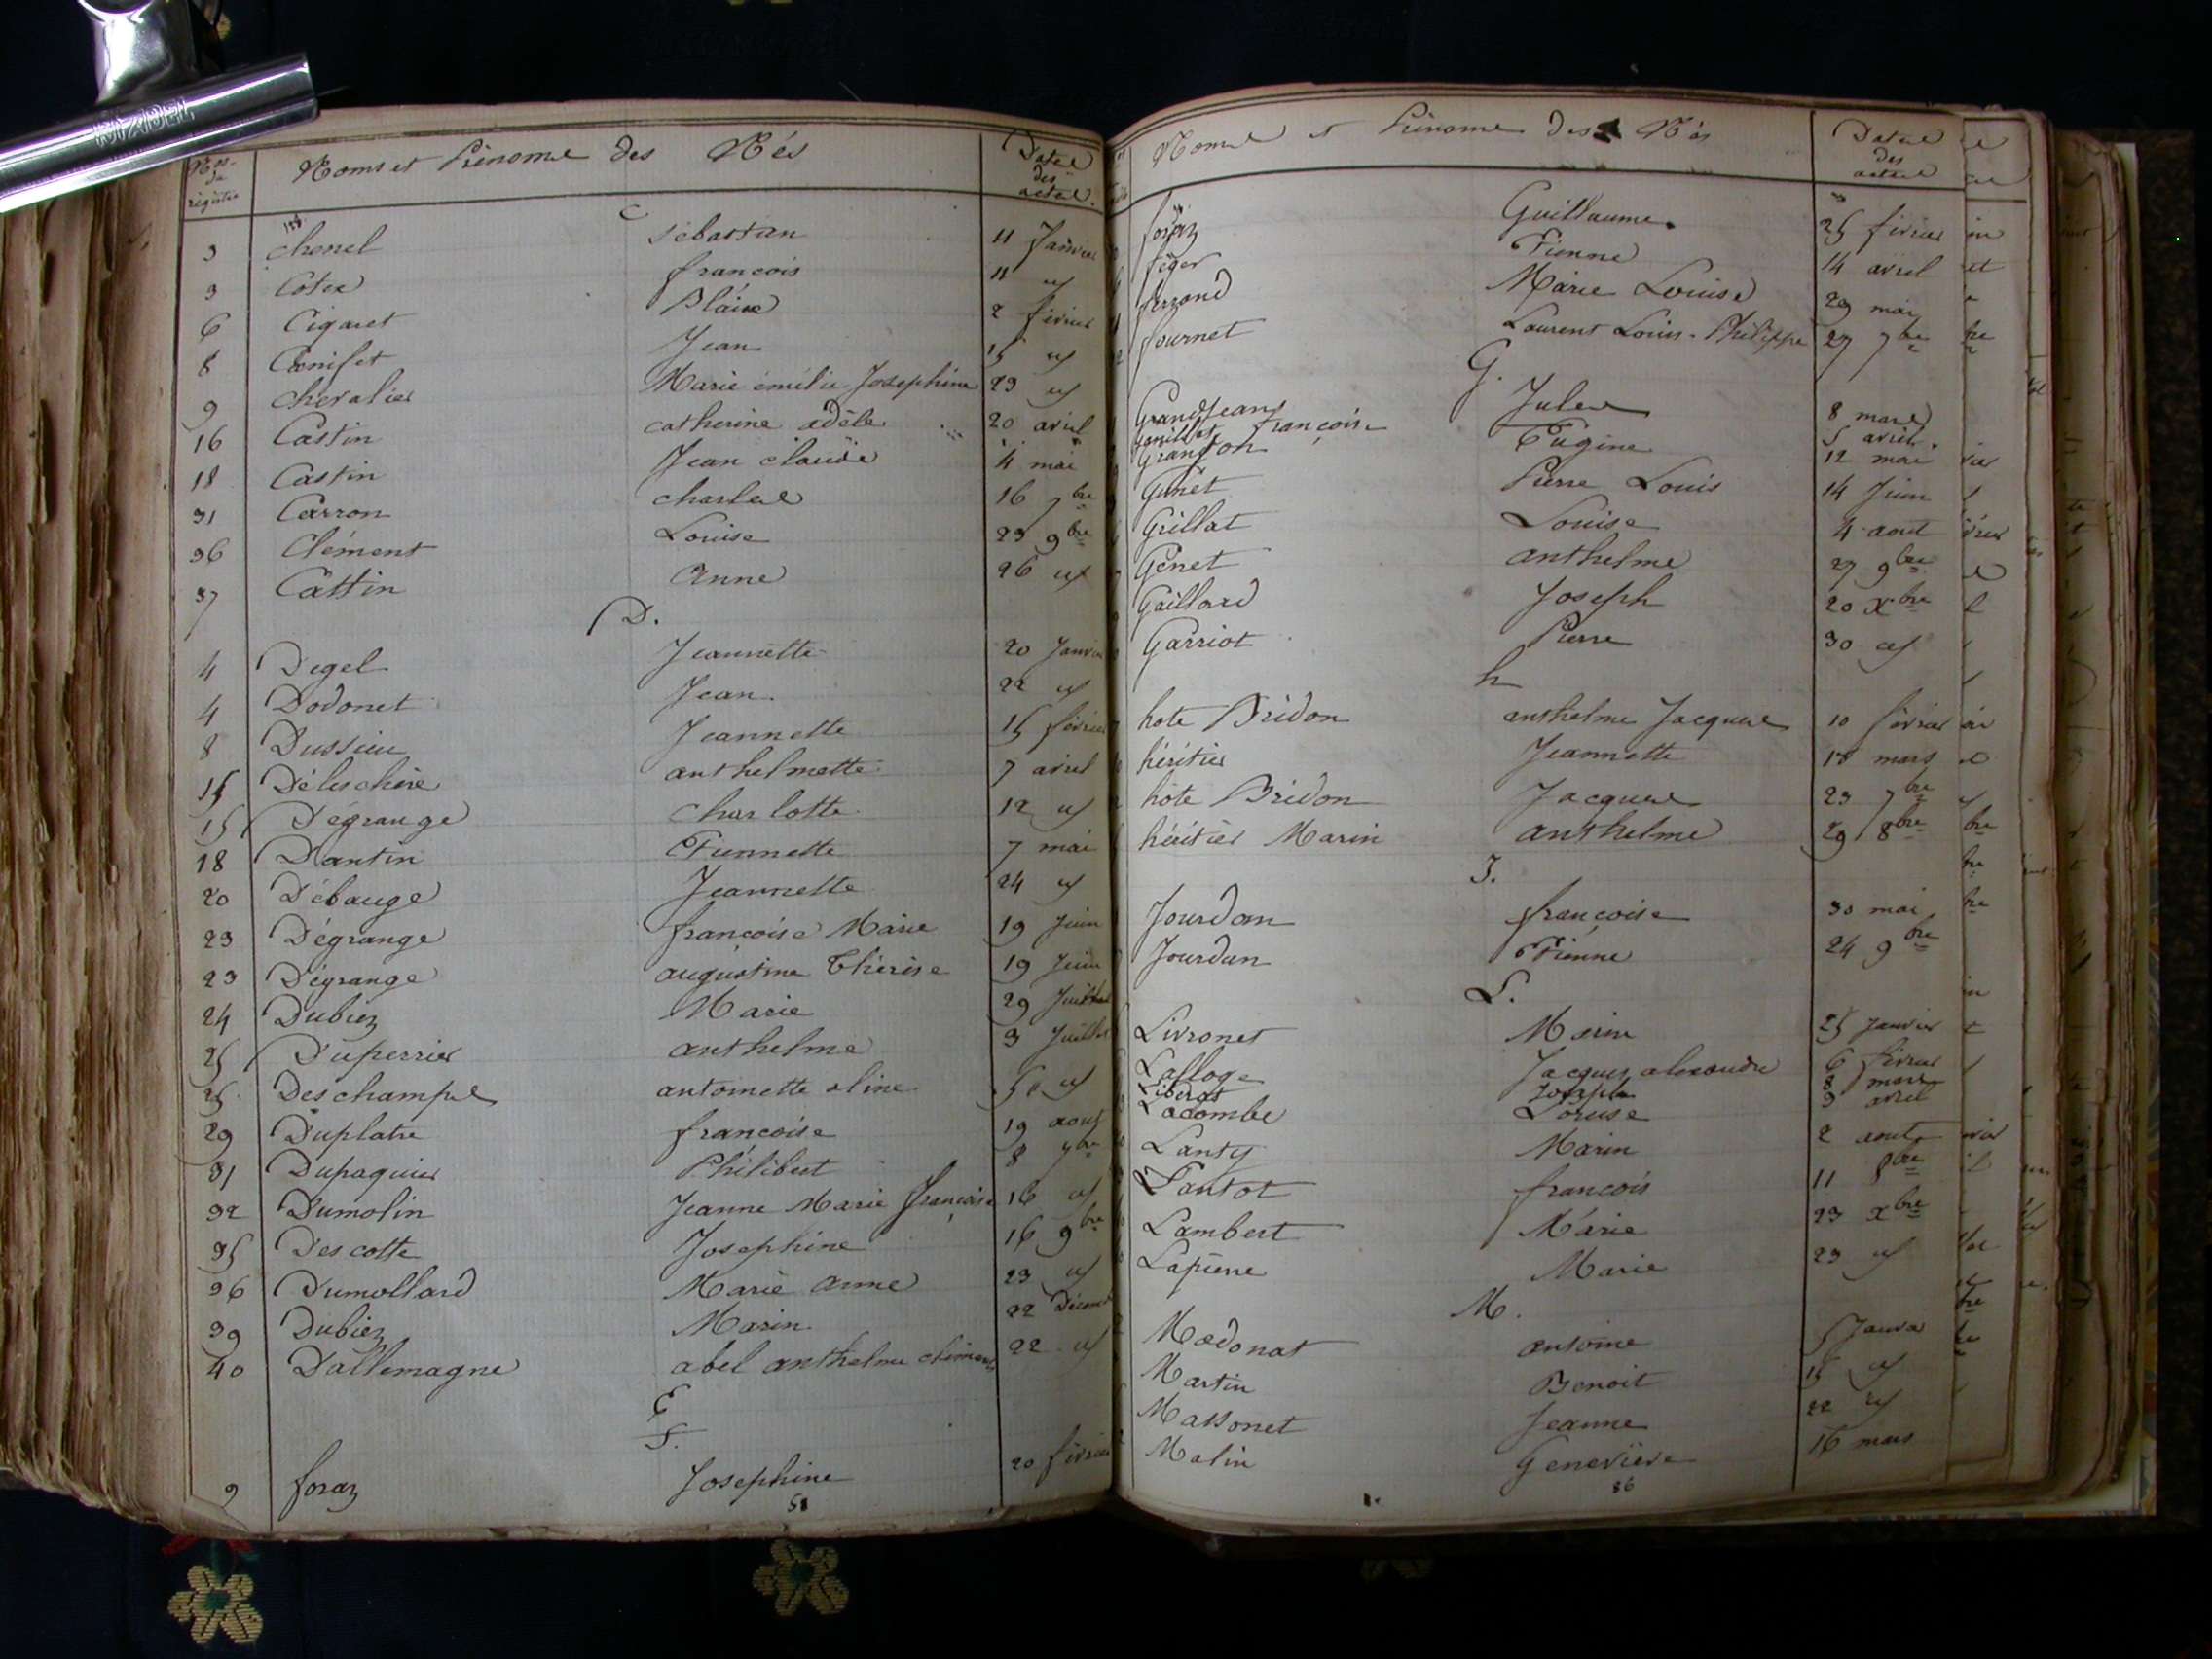 Nos du registre Noms et Prénoms des Nés Dates des actes.
C
3 chenel sébastian 11 Janvier
3 Côte françois 11 id
6 Cigaret Blaise 2 février
8 Jean 15 id
9 chevalier Marie émélie Josephine 23 id
16 Castin catherine adèle 20 avril
18 Castin Jean claude 4 mai
31 Carron charles 16 7bre
36 Clément Louise 23 9bre
37 Cattin Anne 26 id
D.
4 Degel Jeannette 20 Janvier
4 Dodonet Jean 22 id
8 Dussieu Jeannette 15 février
15 anthelmette 7 avril
15 Dégrange Charlotte 12 id
18 Dantin Etiennette 7 mai
20 Débauge Jeannette 24 id
23 Dégrange françoise Marie 19 Juin
23 Dégrange augustine Thérèse 19 Juin
24 Dubiez Marie 29
25 Duperrier anthelme 3 Juillet
25 Deschamps antoinette aline 5 id
29 Duplatre françoise 19 aout
31 Dupaquier Philibert 8 7bre
32 Dumolin Jeanne Marie françoise 16 id
35 Descotte Josephine 16 9bre
36 Dumollard Marie Anne 23 id
39 Dubiez Marin 22
40 Dallemagne abel anthelme clément 22 id
E
F.
9 foraz Josephine 20 février
51
Noms et Prénoms des Nés Dates des actes
foraz Guillaume 25 février
féger Etienne 14 avril
ferrand Marie Louise 29 mai
fournet Laurent Louis-Philippe 27 7bre
G.
Grandjean Jules 8 mars
françoise 5 avril
Granjon Eugène 12 mai
Ginet Pierre Louis 14 Juin
Grillat Louise 4 aout
Genet anthelme 27 9bre
Gaillard Joseph 20 Xbre
Garriot Pierre 30 id
h
hote Bridon anthelme Jacques 10 février
héritier Jeannette mars
hôte Bridon Jacques 23 7bre
héritier Marin anthelme 29 8bre
J.
Jourdan françoise 30 mai
Jourdan Etienne 24 9bre
L.
Livronet Marin 25 Janvier
Lafloge Jacques alexandre 6 février
Liberat Joseph 8 mars
Lacombe Louise 9 avril
Lanty Marin 2 aout
Pantot françois 11 8bre
Lambert Marie 23 Xbre
Lapierre Marie 23 id
M.
Modonat antoine 5
Martin Benoit 15 id
Massonet Jeanne 22 id
Malin Geneviève 16 mars
86